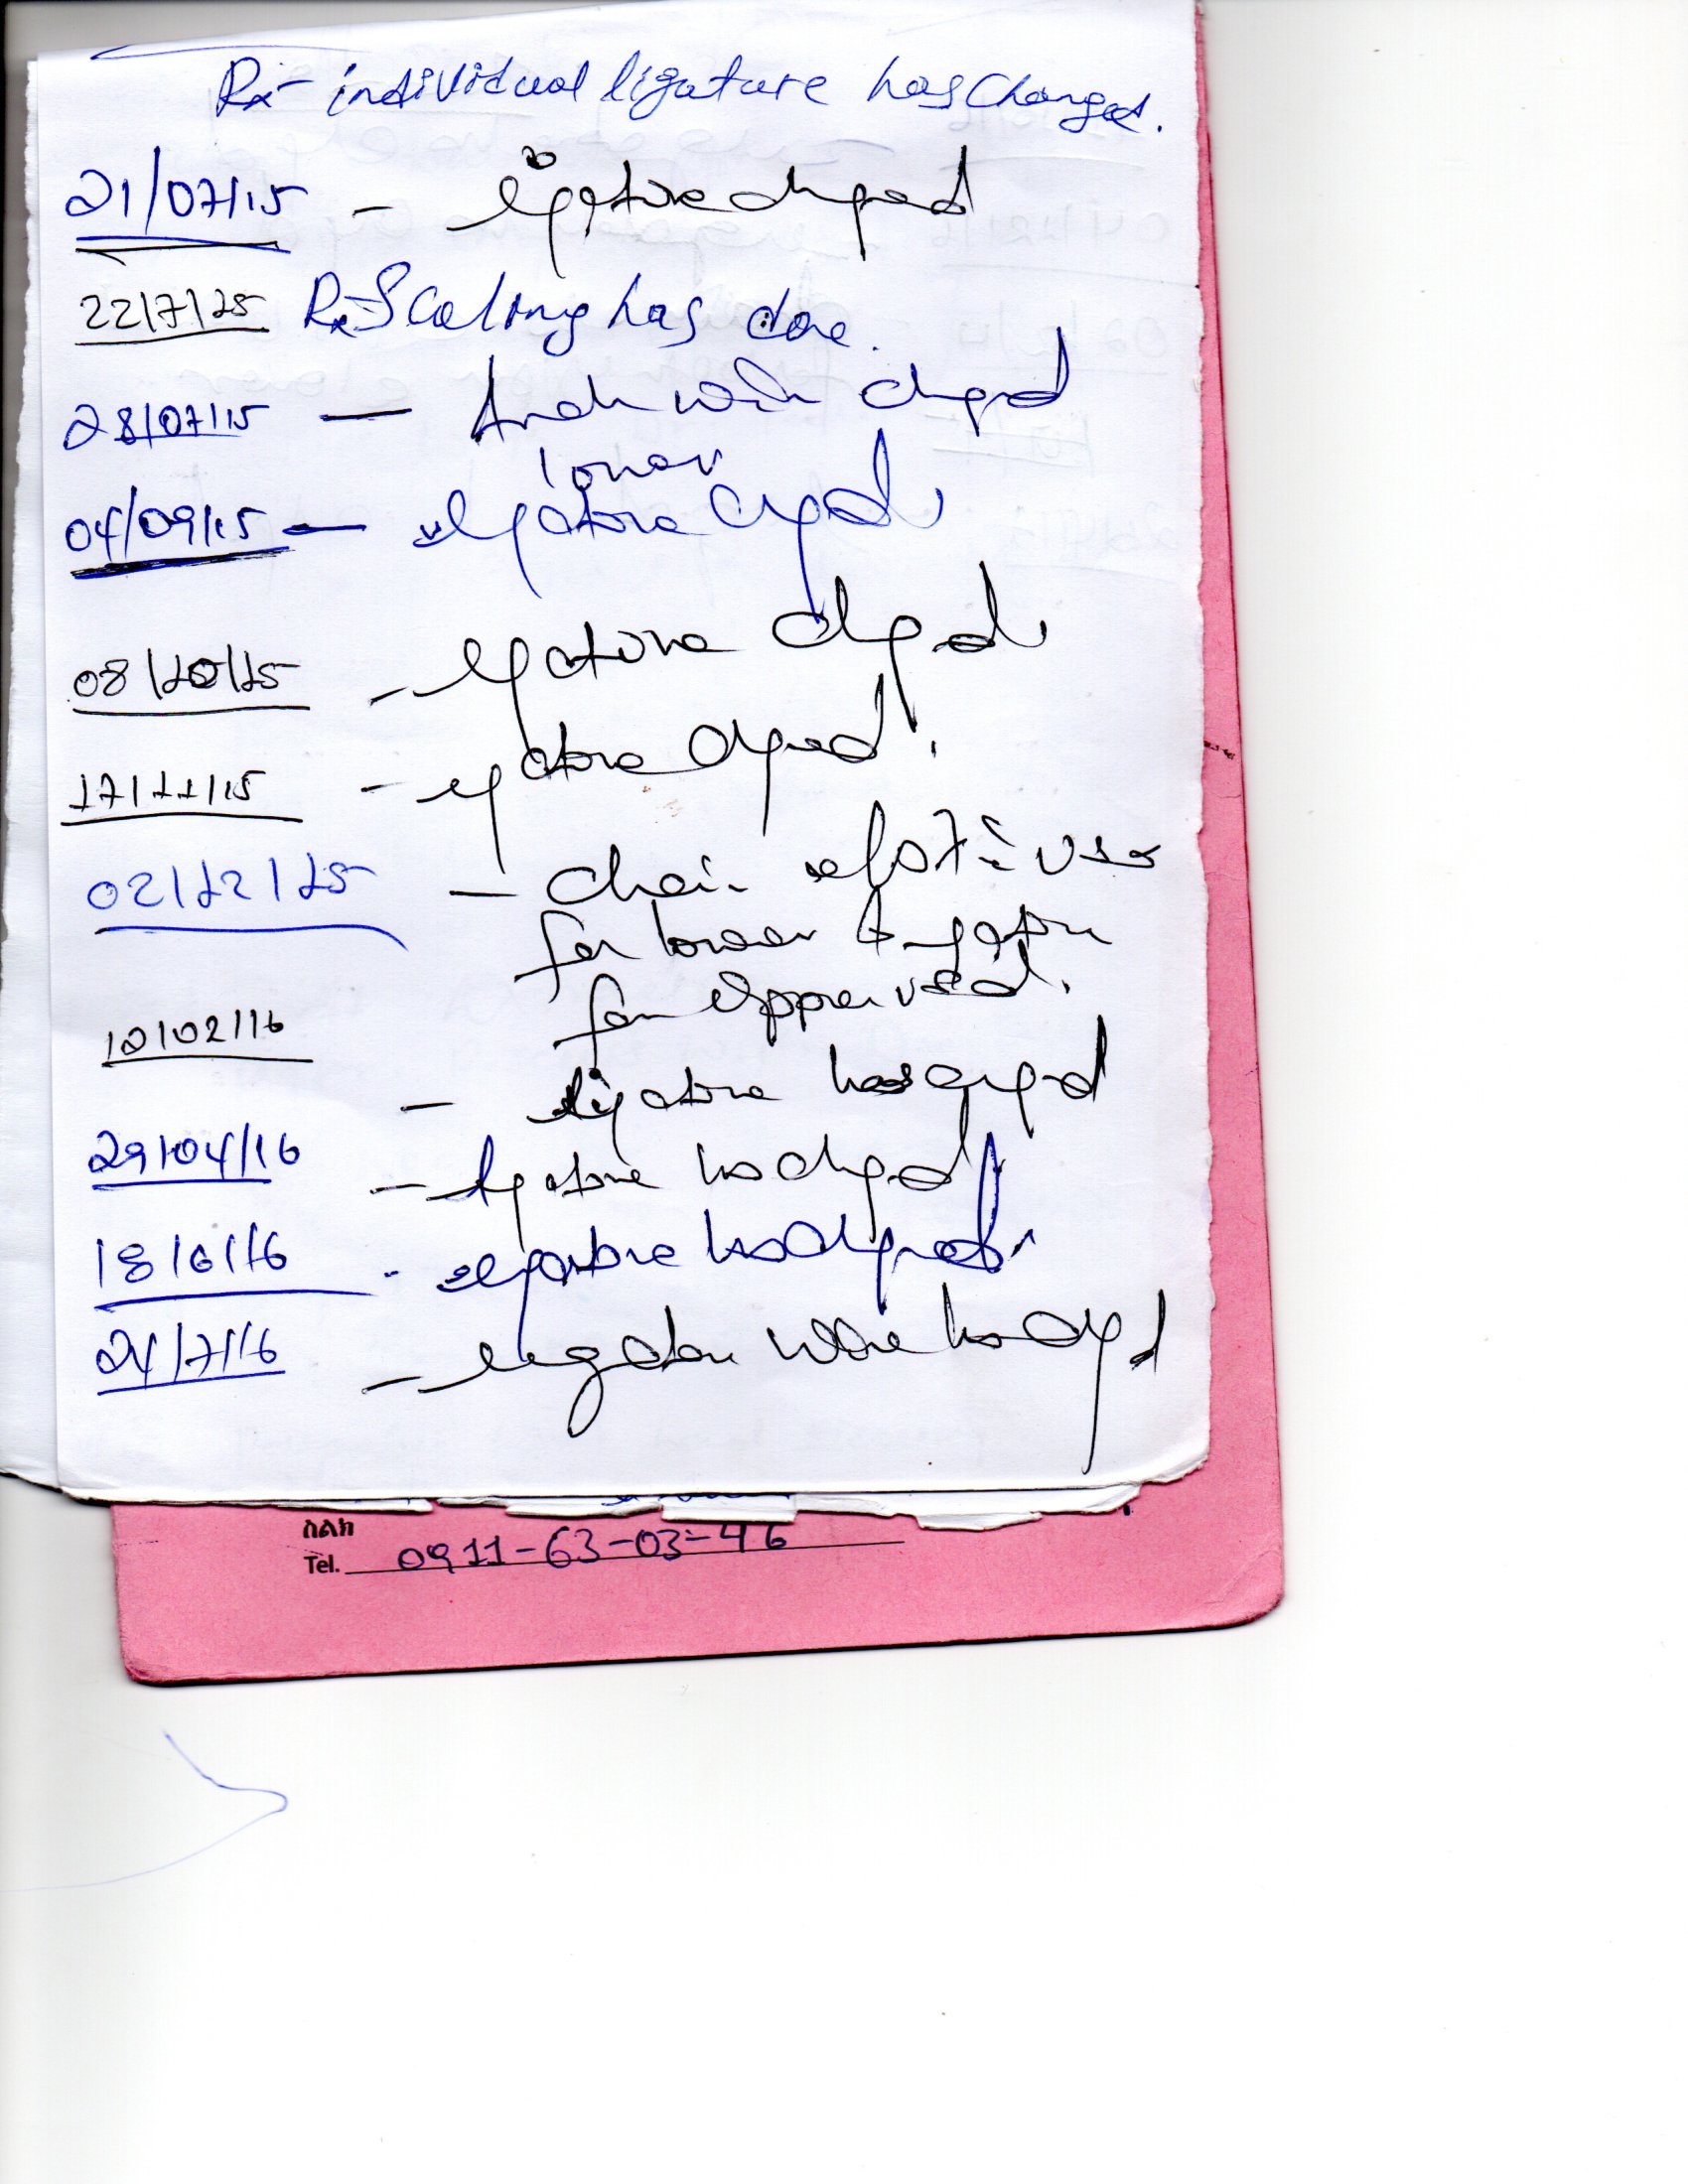 Rx- individual ligature has Changed.
21/07/15 - ligature changed
22/7/15 Rx- Scaling has done.
28/07/15 — Arch wire changed
lower
04/09/15 — ligature changed
08/10/15 - ligature changed
17/11/15 - ligature changed.
02/12/15 - chain elastic used
for lower & ligature
for upper used.
10/02/16
- ligature has changed
29/04/16
- ligature has changed
18/6/16 - ligature has changed
24/7/16 - ligature wire has changed
ስልክ
Tel. 0911-63-03-46